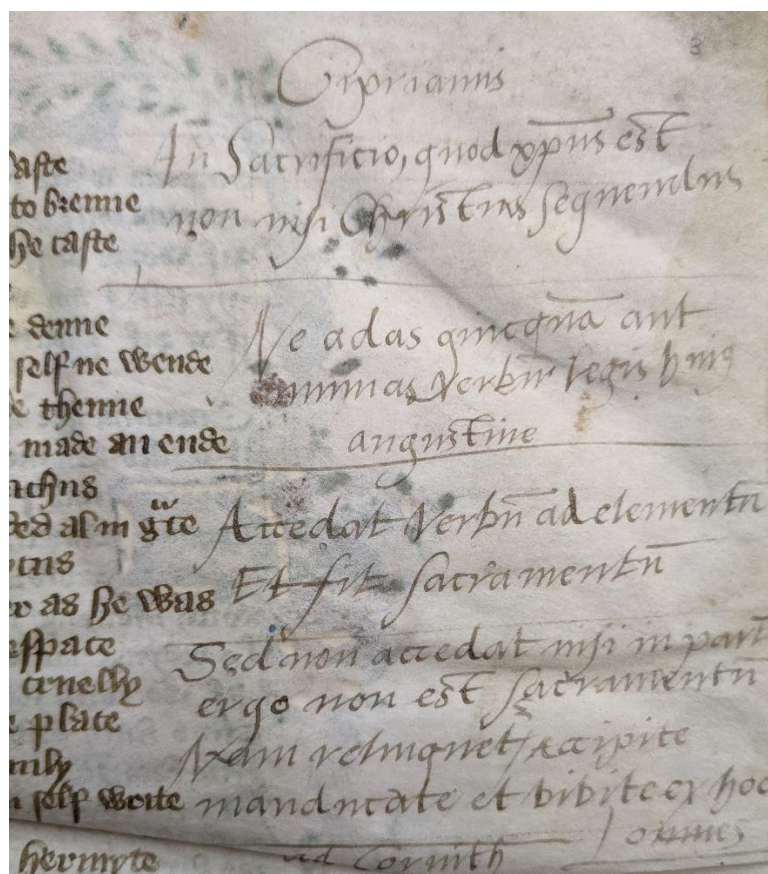 3
Ciprianus
In Sacrificio, quod xp̄us est
non nisi Christus sequendus
Ne adas quicquā aut
minuas verbū legis huiꝰ
augustine
Accedat verbū ad elementū
Et fit sacramentū
Sed non accedat nisi in
ergo non est sacramentū
Nam relinquet accipite
manducate et bibite ex hoc
ad Corinth
aste
to brenne
he caste
denne
self ne wende
thenne
made an ende
as he was
space
cruelly
place
self wrote
hermyte